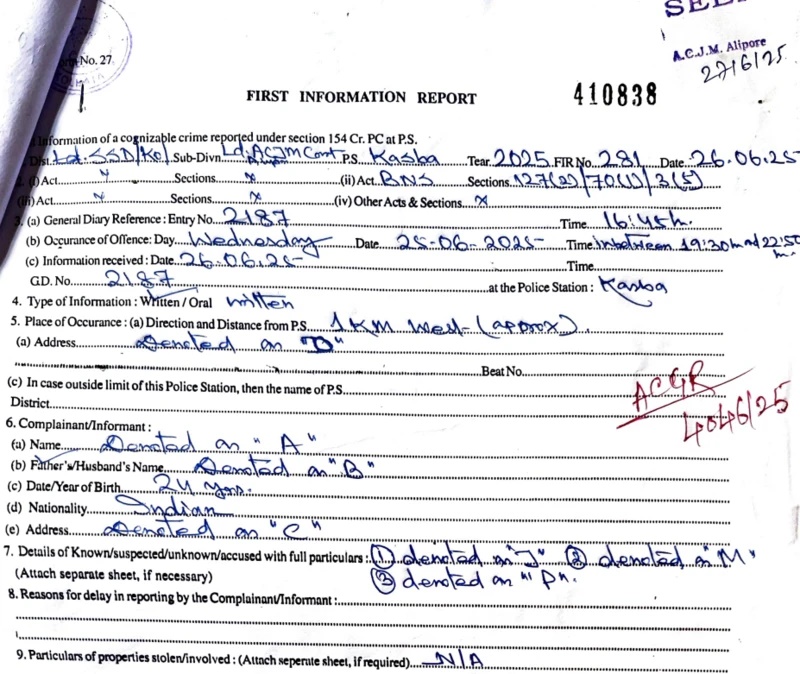 No. 27
A.C.J.M. Alipore
27/6/25
FIRST INFORMATION REPORT 410838
Information of a cognizable crime reported under section 154 Cr. PC at P.S.
Dist. Ld. SSD/Kol Sub-Divn. Ld. ACJM Court P.S. Kasba Year 2025 FIR No. 281 Date. 26.06.25
(i) Act. x Sections. x (ii) Act. BNS Sections. 127(2)/70(1)/3(5)
(iii) Act. x Sections. x (iv) Other Acts & Sections. x
3. (a) General Diary Reference : Entry No. 2187 Time 16:45h.
(b) Occurance of Offence: Day. Wednesday Date 25-06-2025 Time in between 19:30h and 22:50
(c) Information received : Date. 26.06.25 Time.
G.D. No. 2187 at the Police Station : Kasba
4. Type of Information : Written / Oral written
5. Place of Occurance : (a) Direction and Distance from P.S. 1 KM West (approx).
(a) Address Denoted as "D"
Beat No.
(c) In case outside limit of this Police Station, then the name of P.S.
District.
ACGR
4046/25
6. Complainant/Informant :
(a) Name. Denoted as "A"
(b) Father's/Husband's Name. Denoted as "B"
(c) Date/Year of Birth. 24 yrs.
(d) Nationality. Indian
(e) Address Denoted as "C"
7. Details of Known/suspected/unknown/accused with full particulars : (1) denoted as "J" (2) denoted as "M"
(Attach separate sheet, if necessary) (3) denoted as "P".
8. Reasons for delay in reporting by the Complainant/Informant :
9. Particulars of properties stolen/involved : (Attach seperate sheet, if required) N/A